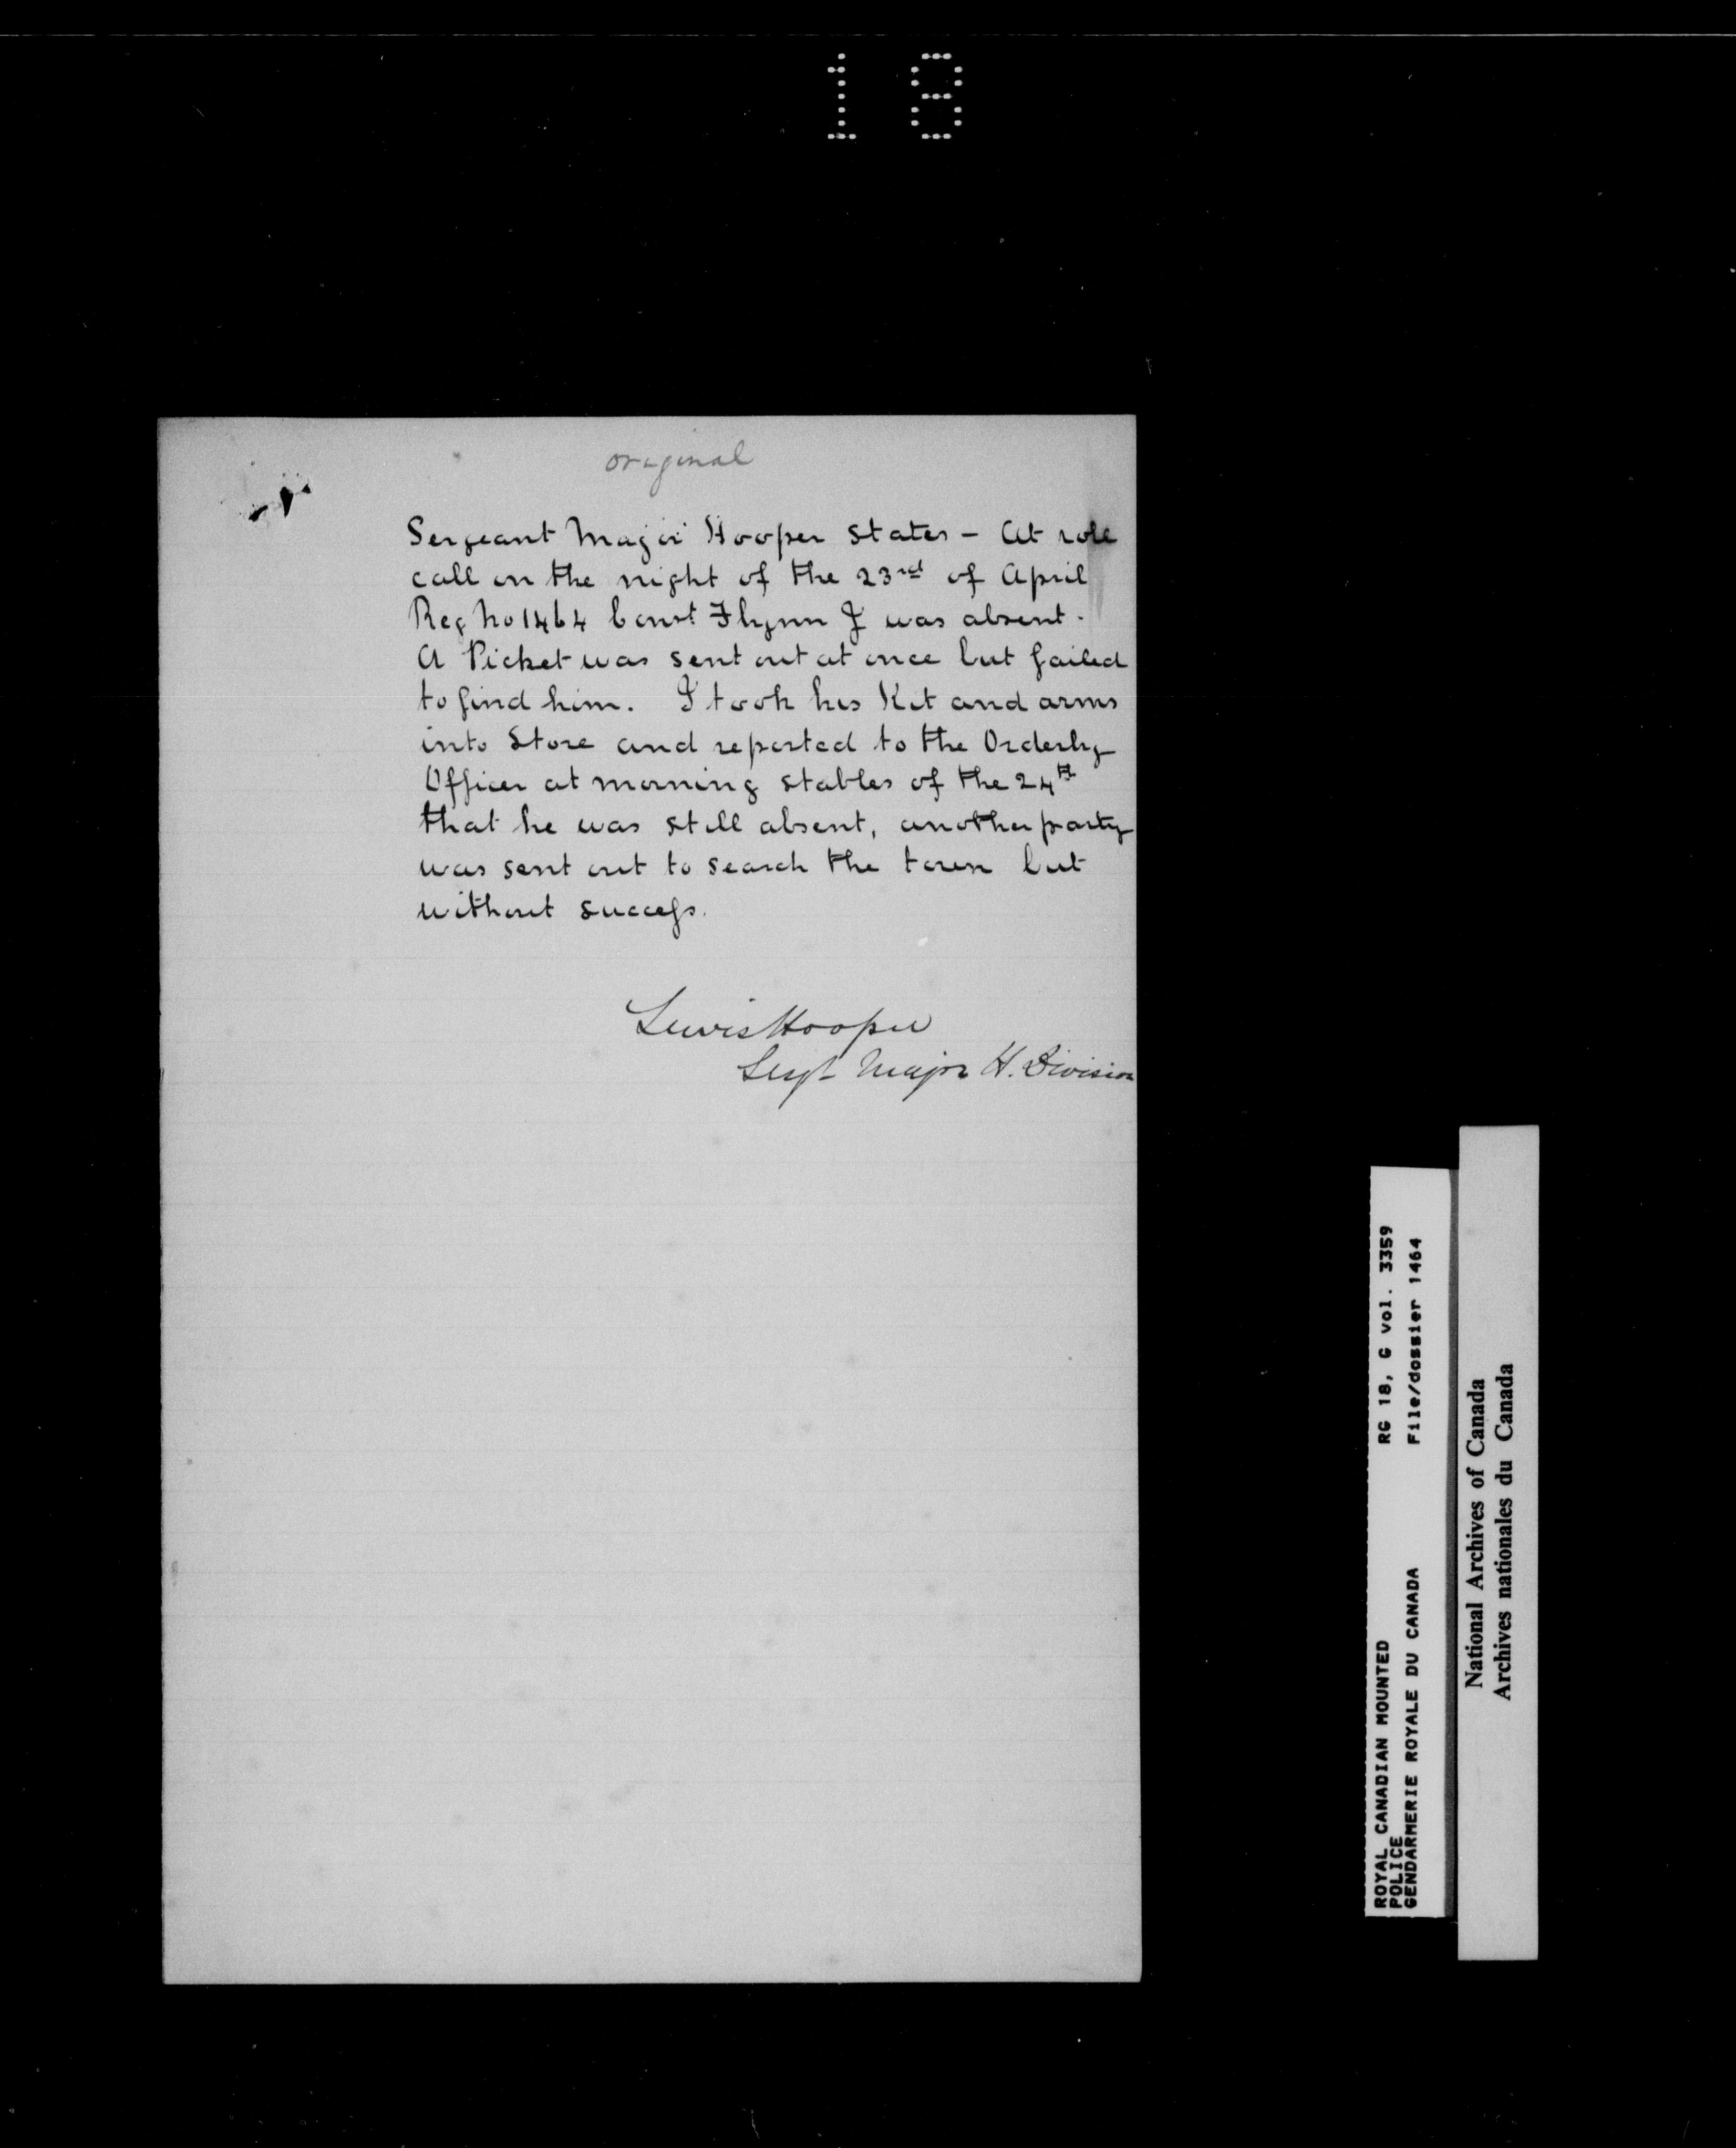 18
original
Sergeant Major Hooper states - At role
call on the night of the 23rd of April
Reg No 1464 Const Flynn J was absent.
A Picket was sent out at once but failed
to find him. I took his Kit and arms
into Store and reported to the Orderly
Officer at morning stables of the 24th
that he was still absent, another party
was sent out to search the town but
without success.
Lewis Hooper
Sergt Major H. Division
ROYAL CANADIAN MOUNTED
POLICE
GENDARMERIE ROYALE DU CANADA
RG 18, G vol. 3359
File/dossier 1464
National Archives of Canada
Archives nationales du Canada